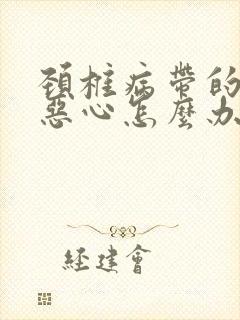 頚椎病帶的
惡心怎麼办
經建會